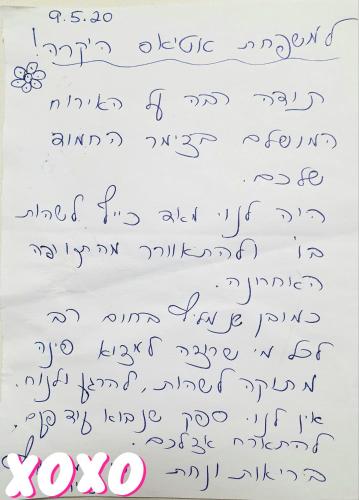 9.5.20
למשפחת אטיאס היקרה!
תודה רבה על האירוח
המושלם בצימר החמוד
שלכם.
היה לנו מאד כייף לשהות
בו ולהתאוורר מהתקופה
האחרונה.
כמובן שנמליץ בחום רב
לכל מי שרוצה למצוא פינה
מתוקה לשהות, להרגע ולנוח.
אין לנו ספק שנבוא עוד פעם,
להתארח אצלכם.
בריאות ונחת
XOXO